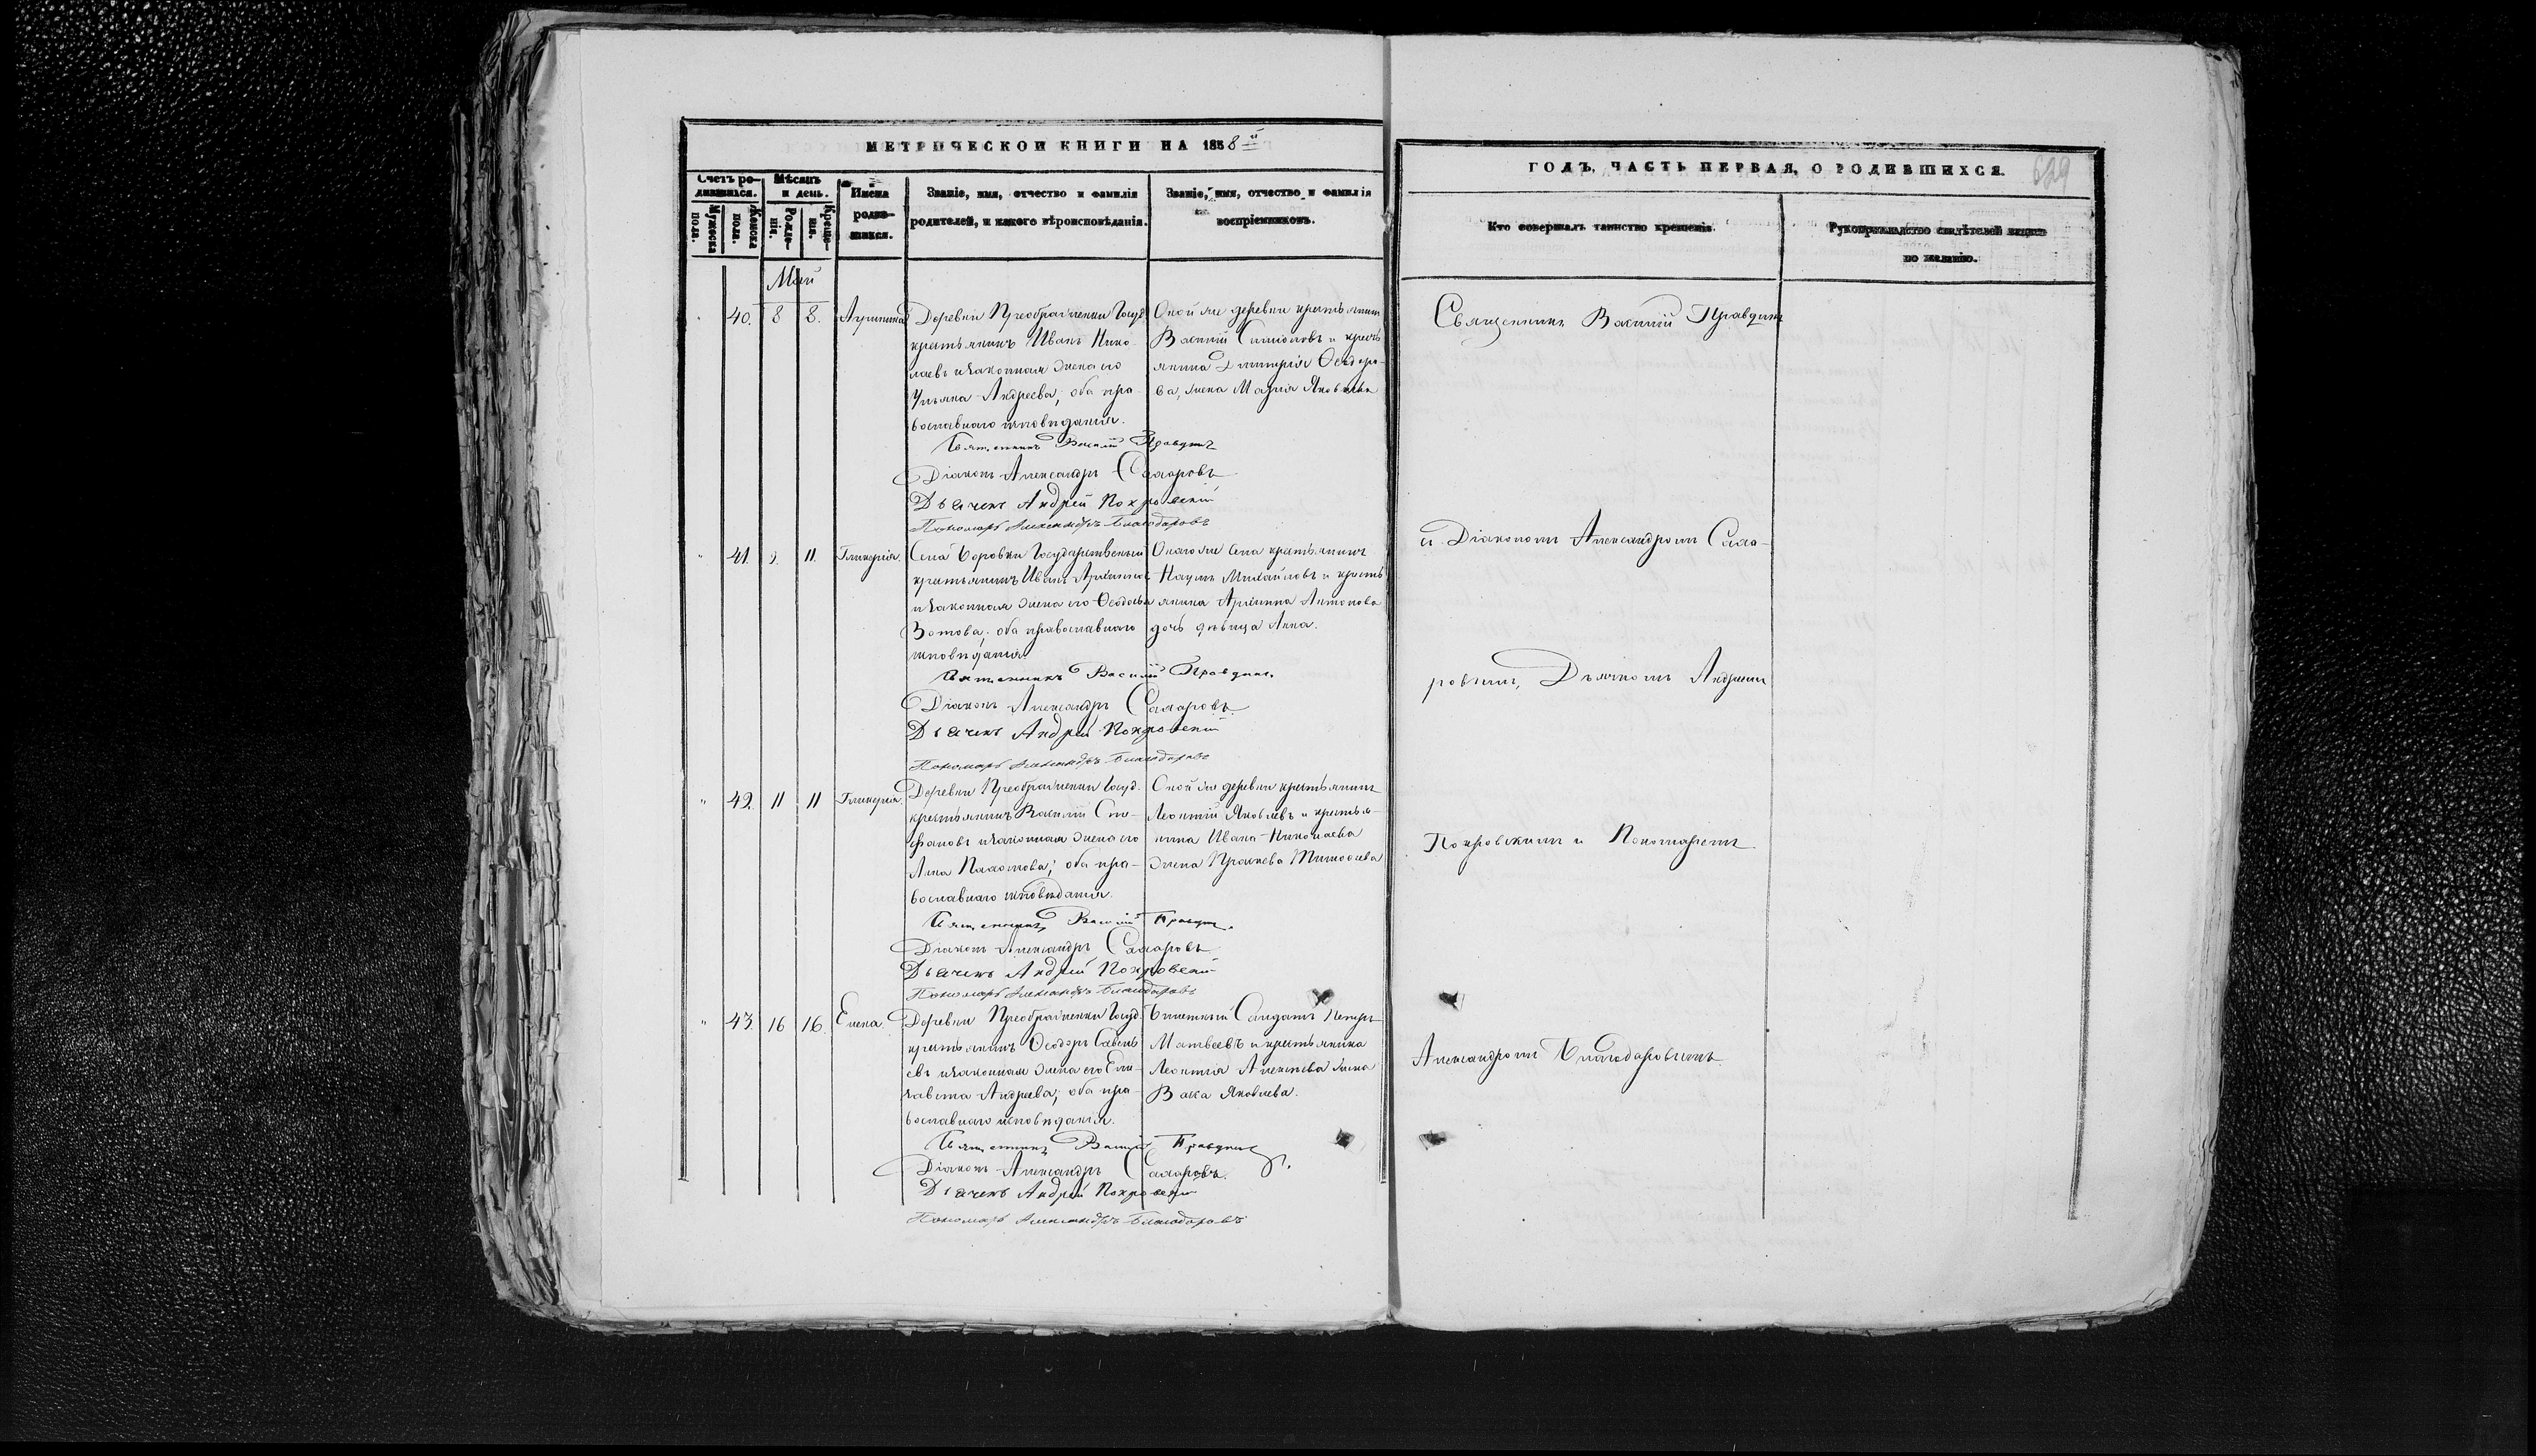 МЕТРИЧЕСКОЙ КНИГИ НА 1858й
ГОДЪ, ЧАСТЬ ПЕРВАЯ, О РОДИВШИХСЯ.
629
Счетъ ро-
дившихся.
Мужеска
пола.
Женска
пола.
Мѣсяцъ
и день.
Рожде-
нія.
Креще-
нія.
Имена
родив-
шихся.
Званіе, имя, отчество и фамилія
родителей, и какого вѣроисповѣданія.
Званіе, имя, отчество и фамилія
воспріемниковъ.
Кто совершалъ таинство крещенія.
Рукоприкладство свидѣтелей записи
по желанію.
Май
40. 8 8.
Деревни Преображенки Госуд.
крестьянинъ Иванъ Нико-
лаевъ и законная жена его
Ульяна Андреева; оба пра-
вославнаго исповѣданія.
Оной же деревни крестьянинъ
Василій Симоновъ и кресть-
янина Димитрія Ѳеодоро-
ва, жена Марія Яковлева
Священникъ Василій Правдинъ
Діаконъ Александръ Сахаровъ
Дьячекъ Андрей Покровскій
Пономарь Александръ Благодаровъ
" 41. 9. 11. Гликерія.
Села Боровки Государственный
крестьянинъ Иванъ Архиповъ
и законная жена его Ѳеодосья
Зотова; оба православнаго
исповѣданія.
Онаго же села крестьянинъ
Наумъ Михайловъ и кресть-
янина Архипа Антонова
дочь дѣвица Анна.
Священникъ Василій Правдинъ.
Діаконъ Александръ Сахаровъ.
Дьячекъ Андрей Покровскій
Пономарь Александръ Благодаровъ
" 42. 11 11 Гликерія.
Деревни Преображенки Госуд.
крестьянинъ Василій Сте-
фановъ и законная жена его
Анна Пахомова; оба пра-
вославнаго исповѣданія.
Оной же деревни крестьянинъ
Леонтій Яковлевъ и крестья-
нина Ивана Николаева
жена Тимоѳеева
Священникъ Василій Правдинъ.
Діаконъ Александръ Сахаровъ
Дьячекъ Андрей Покровскій
Пономарь Александръ Благодаровъ
" 43. 16 16. Елена.
Деревни Преображенки Госуд.
крестьянинъ Ѳеодоръ Савель-
евъ и законная жена его Ели-
завета Андреева; оба пра-
вославнаго исповѣданія.
Билетный Солдатъ Петръ
Матвеевъ и крестьянина
Леонтія Алексѣева жена
Васа Яковлева.
Священникъ Василій Правдинъ.
Діаконъ Александръ Сахаровъ.
Дьячекъ Андрей Покровскій
Пономарь Александръ Благодаровъ
Священникъ Василій Правдинъ
и Діакономъ Александромъ Саха-
ровымъ, Дьячкомъ Андреемъ
Покровскимъ и Пономаремъ
Александромъ Благодаровымъ.